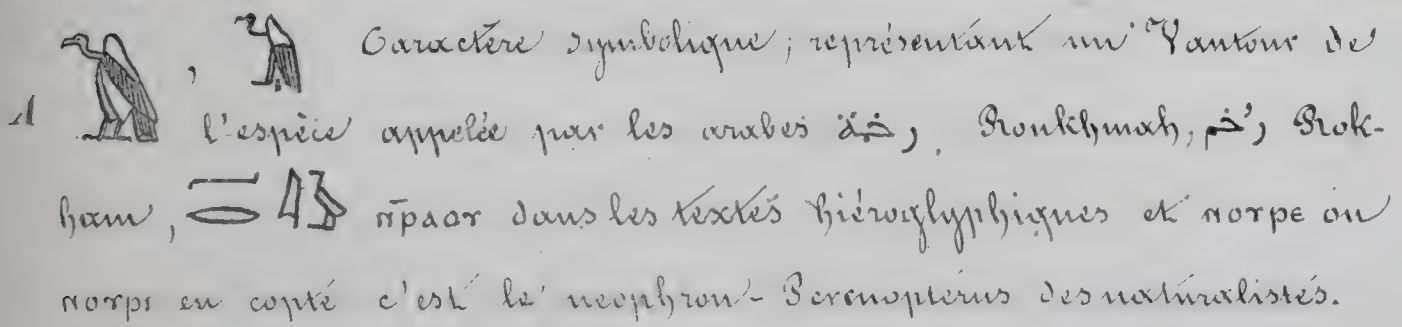 Caractère symbolique ; représentant un Vautour de
l'espèce appelée par les arabes رخمة, Roukhmah, رخم, Rok-
ham, ⲛ̄ⲣⲁⲟⲩ dans les textes hiéroglyphiques et ⲛⲟⲩⲣⲉ ou
ⲛⲟⲩⲣⲓ en copte c'est le neophron-Percnopterus des naturalistes.